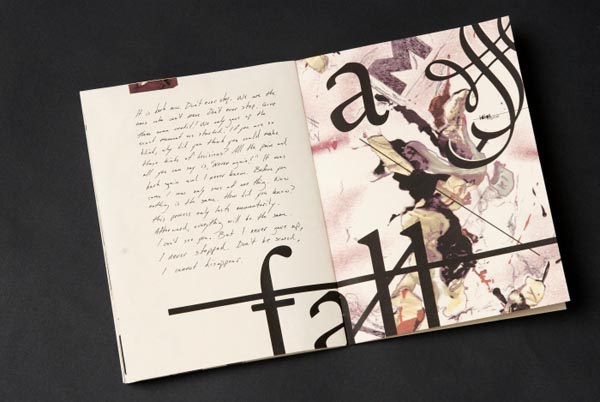 It is both one. Don't ever stop. We are the
ones who can't move. Don't ever stop. Give
them more credit! We only gave up the
exact moment we started. If you are so
blind, why did you think you could make
those kinds of decisions? All the pain and
all you can say is, "Never again!" It was
both again and I never knew. Before you
came I was only ever at one thing. Now
nothing is the same. How did you know?
this process only lasts momentarily.
Afterward, everything will be the same.
I can't see you. But I never gave up,
I never stopped. Don't be scared,
I cannot disappear.
a
fall